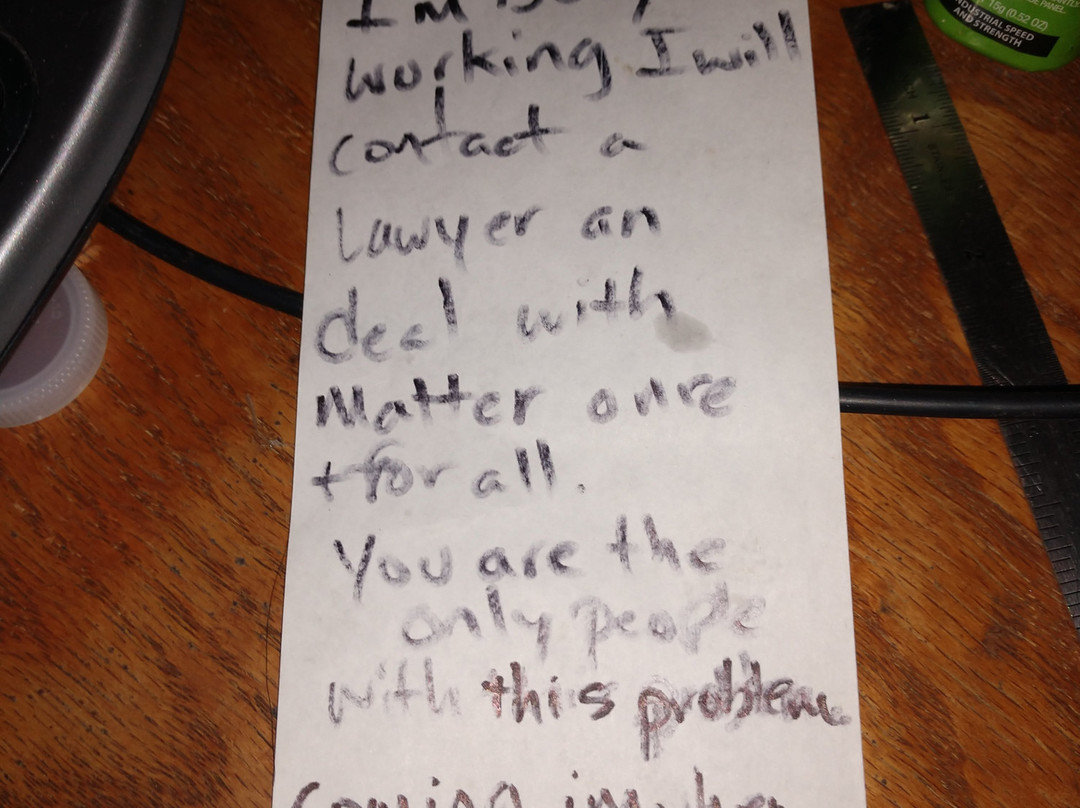 I'm
working I will
contact a
Lawyer an
deal with
Matter onre
+ for all.
You are the
only people
with this problem
coming in
15g (0.52 OZ)
INDUSTRIAL SPEED
AND STRENGTH
1
2